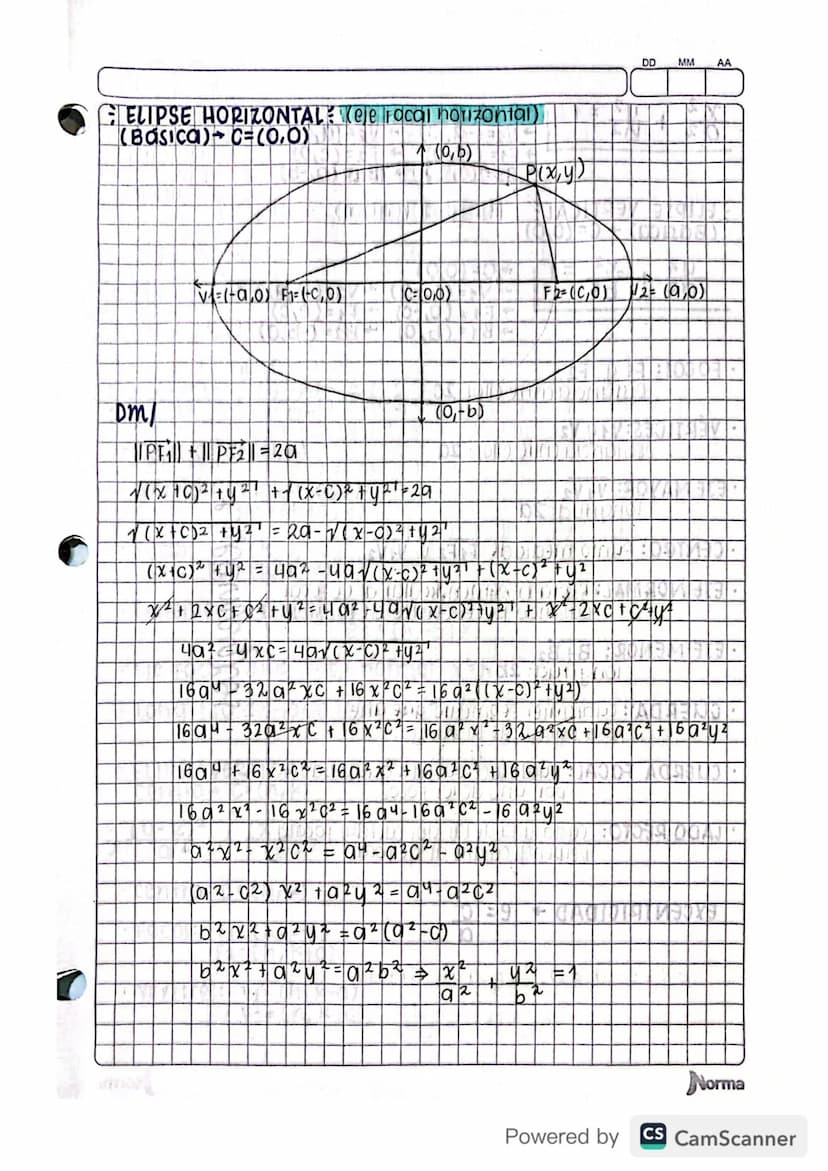 DD MM AA
⁝ ELIPSE HORIZONTAL: (eje Focal horizontal)
(Básica)→ C=(0,0)
(0,b)
P(x,y)
V1=(-a,0) F1=(-c,0) C=(0,0) F2=(c,0) V2= (a,0)
(0,-b)
Dm/
||PF1|| + ||PF2|| = 2a
√(x+c)² + y² + √(x-c)² + y² = 2a
√(x+c)² + y² = 2a - √(x-c)² + y²
(x+c)² + y² = 4a² - 4a√(x-c)² + y² + (x-c)² + y²
x² + 2xc + c² + y² = 4a² - 4a√(x-c)² + y² + x² - 2xc + c² + y²
4a² - 4xc = 4a√(x-c)² + y²
16a⁴ - 32a²xc + 16x²c² = 16a²((x-c)² + y²)
16a⁴ - 32a²xc + 16x²c² = 16a²x² - 32a²xc + 16a²c² + 16a²y²
16a⁴ + 16x²c² = 16a²x² + 16a²c² + 16a²y²
16a²x² - 16x²c² = 16a⁴ - 16a²c² - 16a²y²
a²x² - x²c² = a⁴ - a²c² - a²y²
(a² - c²) x² + a²y² = a⁴ - a²c²
b²x² + a²y² = a²(a² - c)
b²x² + a²y² = a²b² ⇒ x²/a² + y²/b² = 1
Norma
Powered by CS CamScanner